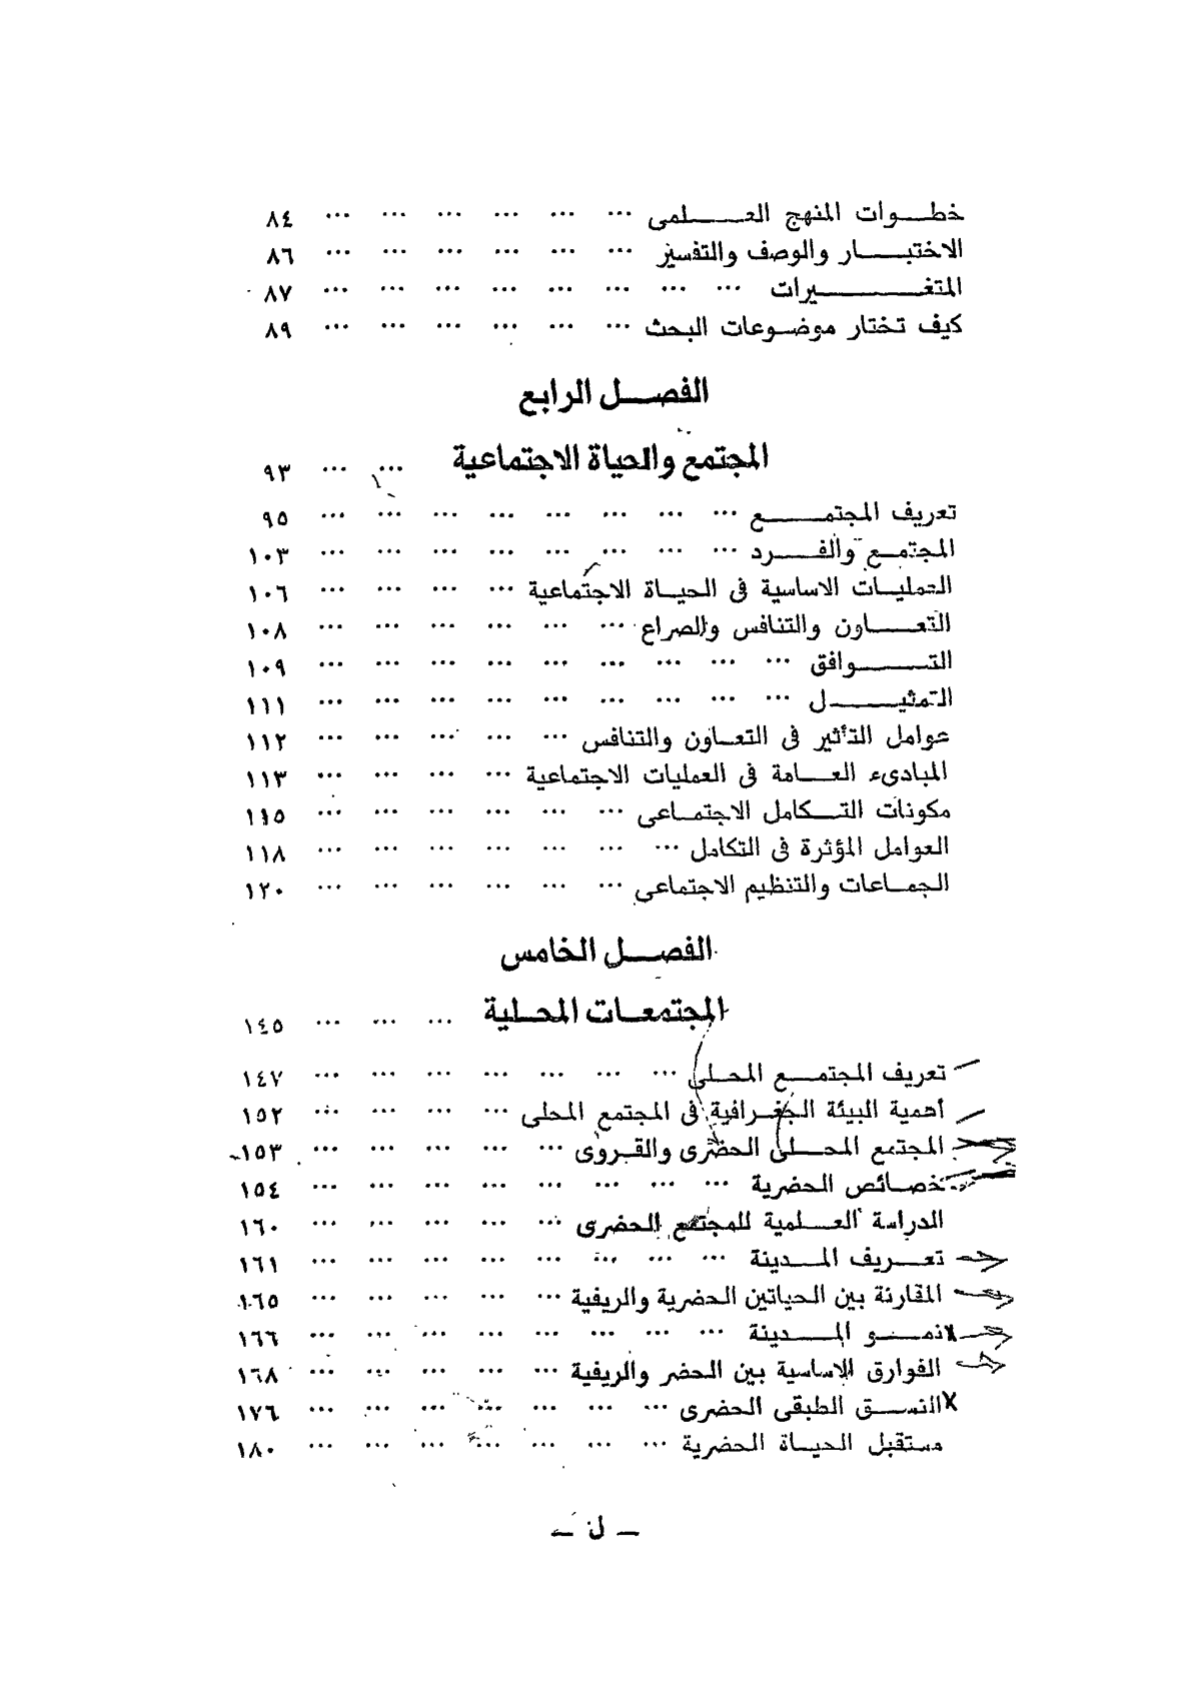 خطوات المنهج العلمى ... ... ... ... ... ... ٨٤
الاختبار والوصف والتفسير ... ... ... ... ... ... ٨٦
المتغيرات ... ... ... ... ... ... ... ... ٨٧
كيف تختار موضوعات البحث ... ... ... ... ... ... ٨٩
الفصل الرابع
المجتمع والحياة الاجتماعية ... ... ٩٣
تعريف المجتمع ... ... ... ... ... ... ... ... ٩٥
المجتمع والفرد ... ... ... ... ... ... ... ... ١٠٣
العمليات الاساسية فى الحياة الاجتماعية ... ... ... ... ١٠٦
التعاون والتنافس والصراع ... ... ... ... ... ... ١٠٨
التوافق ... ... ... ... ... ... ... ... ... ١٠٩
التمثيل ... ... ... ... ... ... ... ... ... ١١١
عوامل التأثير فى التعاون والتنافس ... ... ... ... ... ١١٢
المبادىء العامة فى العمليات الاجتماعية ... ... ... ... ١١٣
مكونات التكامل الاجتماعى ... ... ... ... ... ... ١١٥
العوامل المؤثرة فى التكامل ... ... ... ... ... ... ... ١١٨
الجماعات والتنظيم الاجتماعى ... ... ... ... ... ... ١٢٠
الفصل الخامس
المجتمعات المحلية ... ... ... ١٤٥
تعريف المجتمع المحلى ... ... ... ... ... ... ... ١٤٧
أهمية البيئة الجغرافية فى المجتمع المحلى ... ... ... ... ١٥٢
المجتمع المحلى الحضرى والقروى ... ... ... ... ... ١٥٣
خصائص الحضرية ... ... ... ... ... ... ... ... ١٥٤
الدراسة العلمية للمجتمع الحضرى ... ... ... ... ... ١٦٠
تعريف المدينة ... ... ... ... ... ... ... ... ١٦١
المقارنة بين الحياتين الحضرية والريفية ... ... ... ... ... ١٦٥
نمو المدينة ... ... ... ... ... ... ... ... ١٦٦
الفوارق الاساسية بين الحضر والريفية ... ... ... ... ... ١٦٨
النسق الطبقى الحضرى ... ... ... ... ... ... ... ١٧٦
مستقبل الحياة الحضرية ... ... ... ... ... ... ... ١٨٠
— ل —